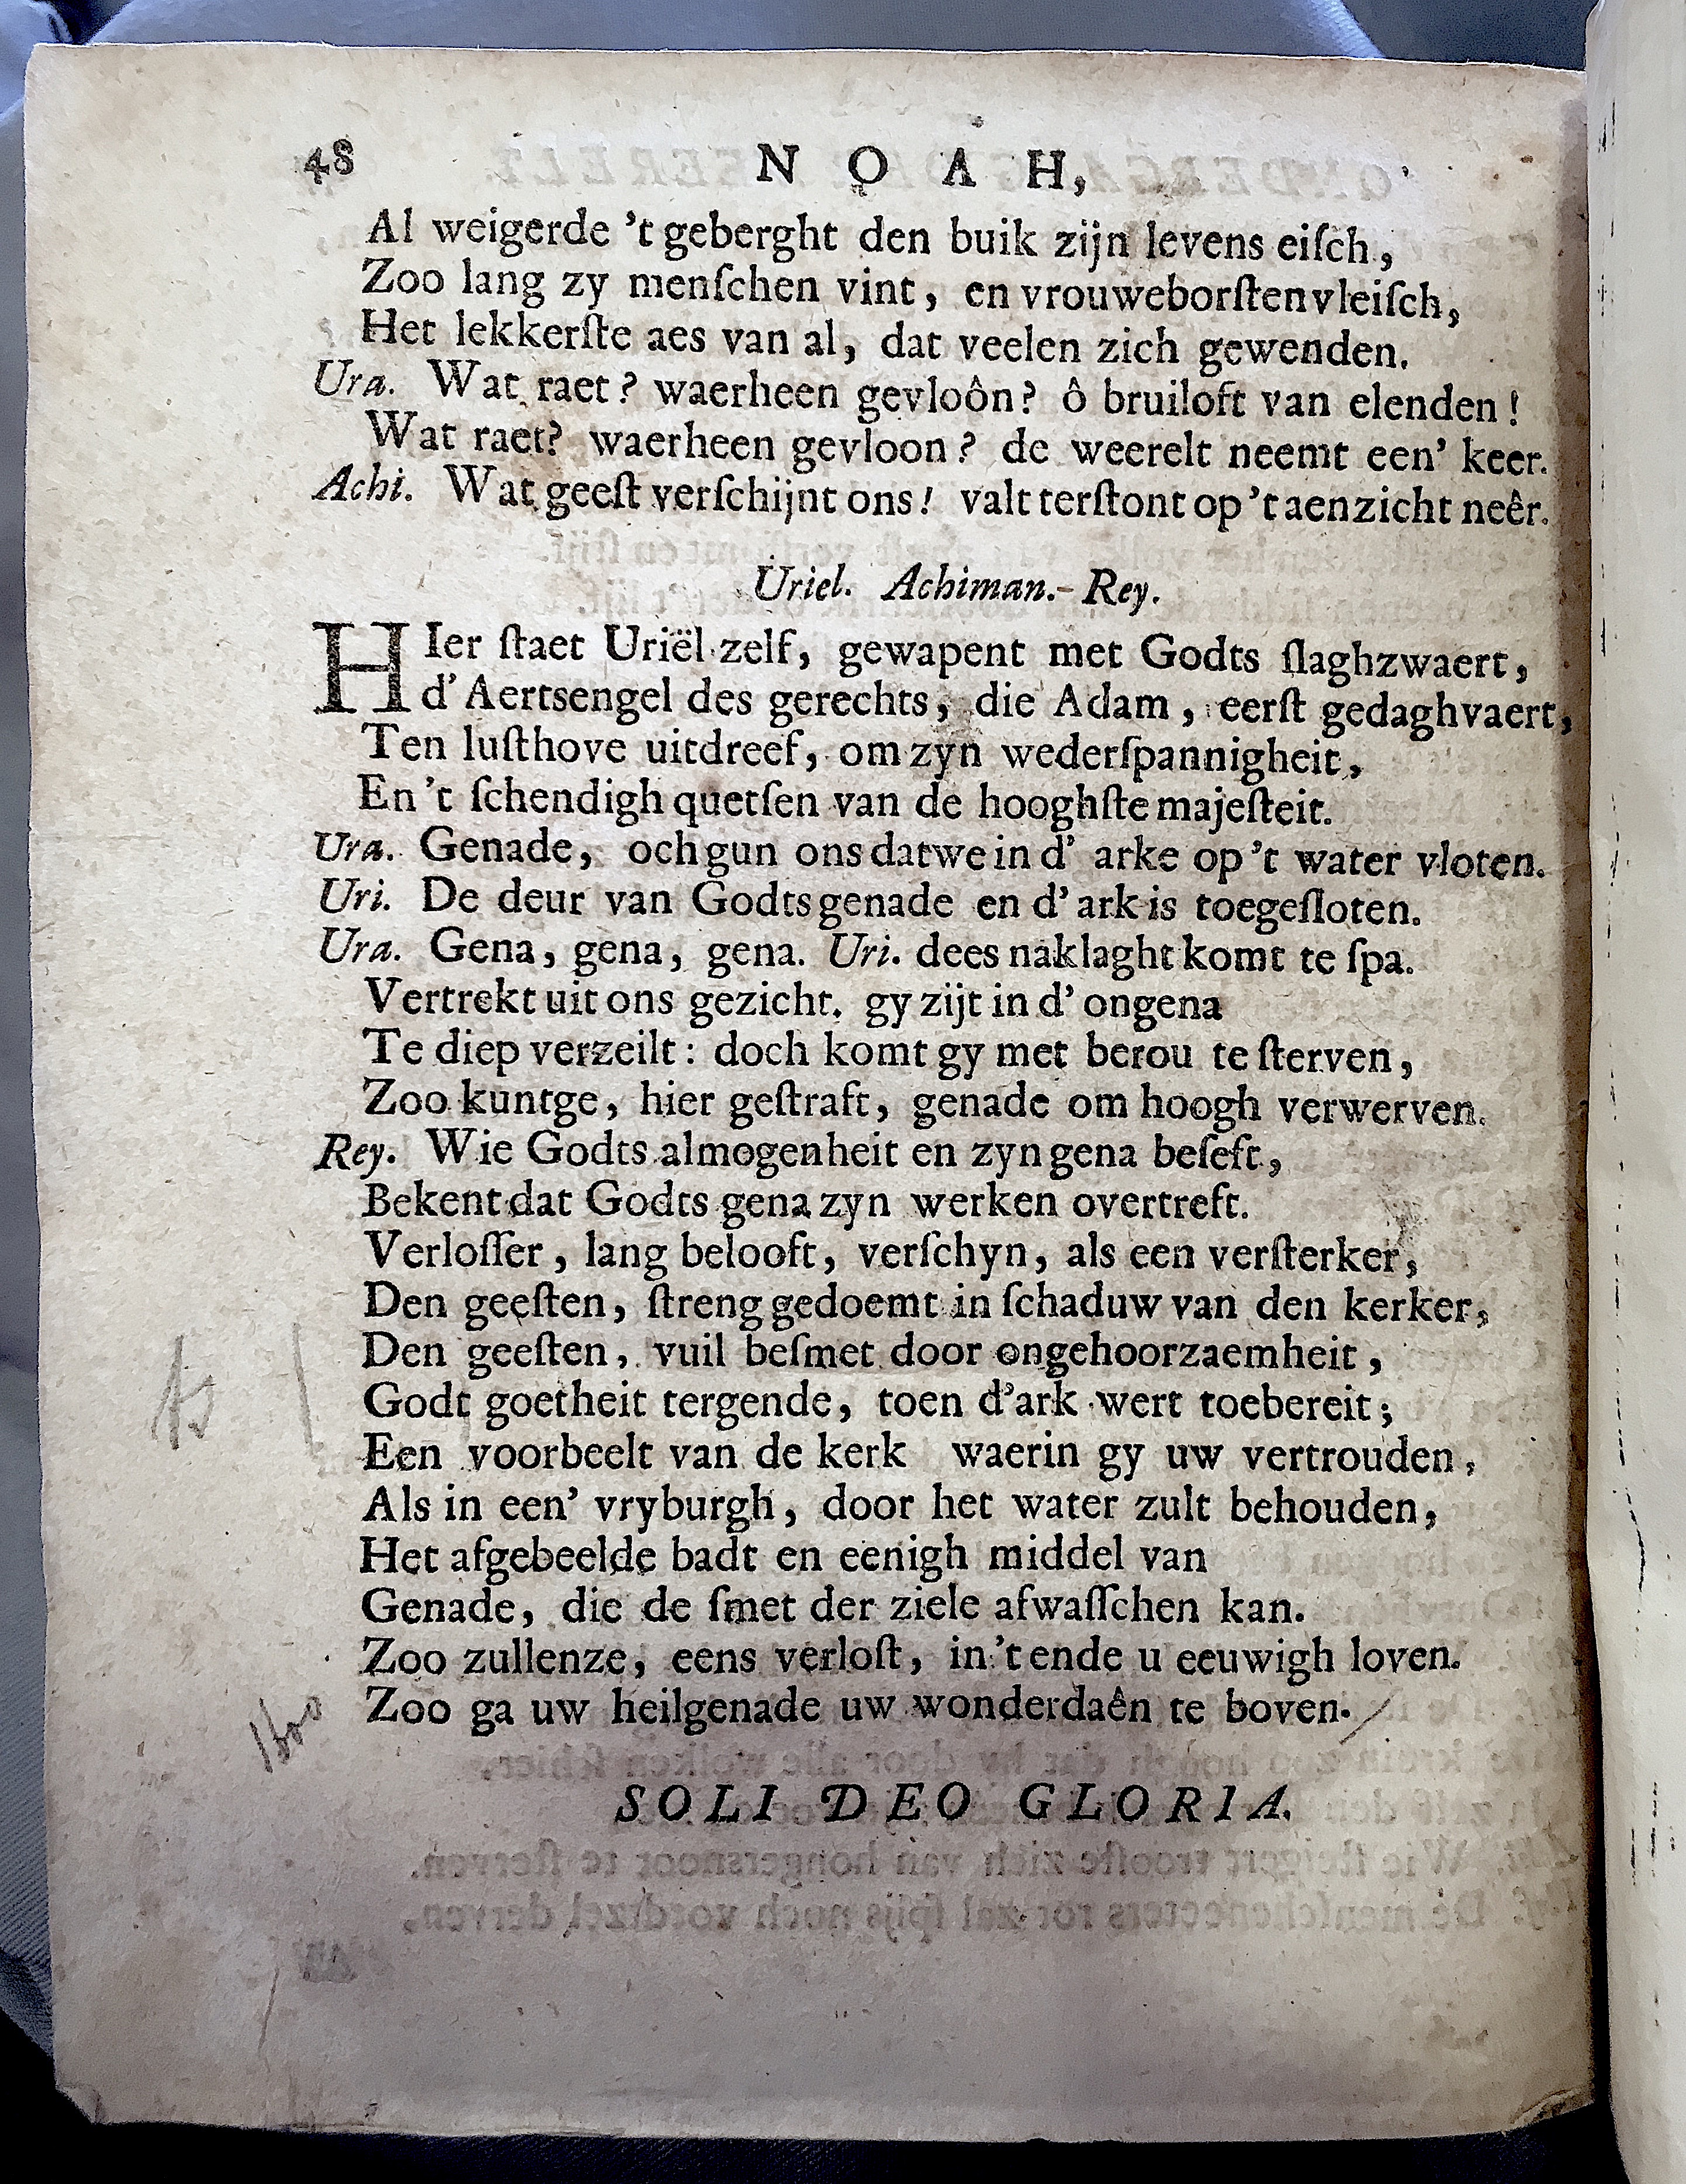 48 NOAH,
Al weigerde ’t geberght den buik zijn levens eiſch,
Zoo lang zy menſchen vint, en vrouweborſtenvleiſch,
Het lekkerſte aes van al, dat veelen zich gewenden.
Ura. Wat raet? waerheen gevloôn? ô bruiloft van elenden!
Wat raet? waerheen gevloon? de weerelt neemt een’ keer.
Achi. Wat geeſt verſchijnt ons! valt terſtont op ’t aenzicht neêr.
Uriel. Achiman. Rey.
HIer ſtaet Uriël zelf, gewapent met Godts ſlaghzwaert,
d’Aertsengel des gerechts, die Adam, eerſt gedaghvaert,
Ten luſthove uitdreef, om zyn wederſpannigheit,
En ’t ſchendigh quetſen van de hooghſte majeſteit.
Ura. Genade, och gun ons dat we in d’ arke op ’t water vloten.
Uri. De deur van Godts genade en d’ ark is toegeſloten.
Ura. Gena, gena, gena. Uri. dees naklaght komt te ſpa.
Vertrekt uit ons gezicht. gy zijt in d’ ongena
Te diep verzeilt: doch komt gy met berou te ſterven,
Zoo kuntge, hier geſtraft, genade om hoogh verwerven.
Rey. Wie Godts almogenheit en zyn gena beſeft,
Bekent dat Godts gena zyn werken overtreft.
Verloſſer, lang belooft, verſchyn, als een verſterker,
Den geeſten, ſtreng gedoemt in ſchaduw van den kerker,
Den geeſten, vuil beſmet door ongehoorzaemheit,
Godt goetheit tergende, toen d’ark wert toebereit;
Een voorbeelt van de kerk waerin gy uw vertrouden,
Als in een’ vryburgh, door het water zult behouden,
Het afgebeelde badt en eenigh middel van
Genade, die de ſmet der ziele afwaſſchen kan.
Zoo zullenze, eens verloſt, in ’t ende u eeuwigh loven.
Zoo ga uw heilgenade uw wonderdaên te boven.
SOLI DEO GLORIA.